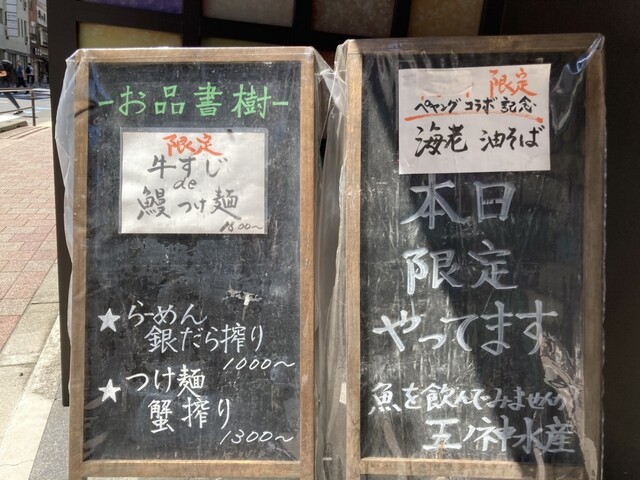 -お品書樹-
限定
牛すじ
de
鰻 つけ麺
1500〜
★らーめん
銀だら搾り
1000〜
★つけ麺
蟹搾り
1300〜
限定
ペヤング コラボ記念
海老 油そば
本日
限定
やってます
魚を飲んでみませんか
五ノ神水産